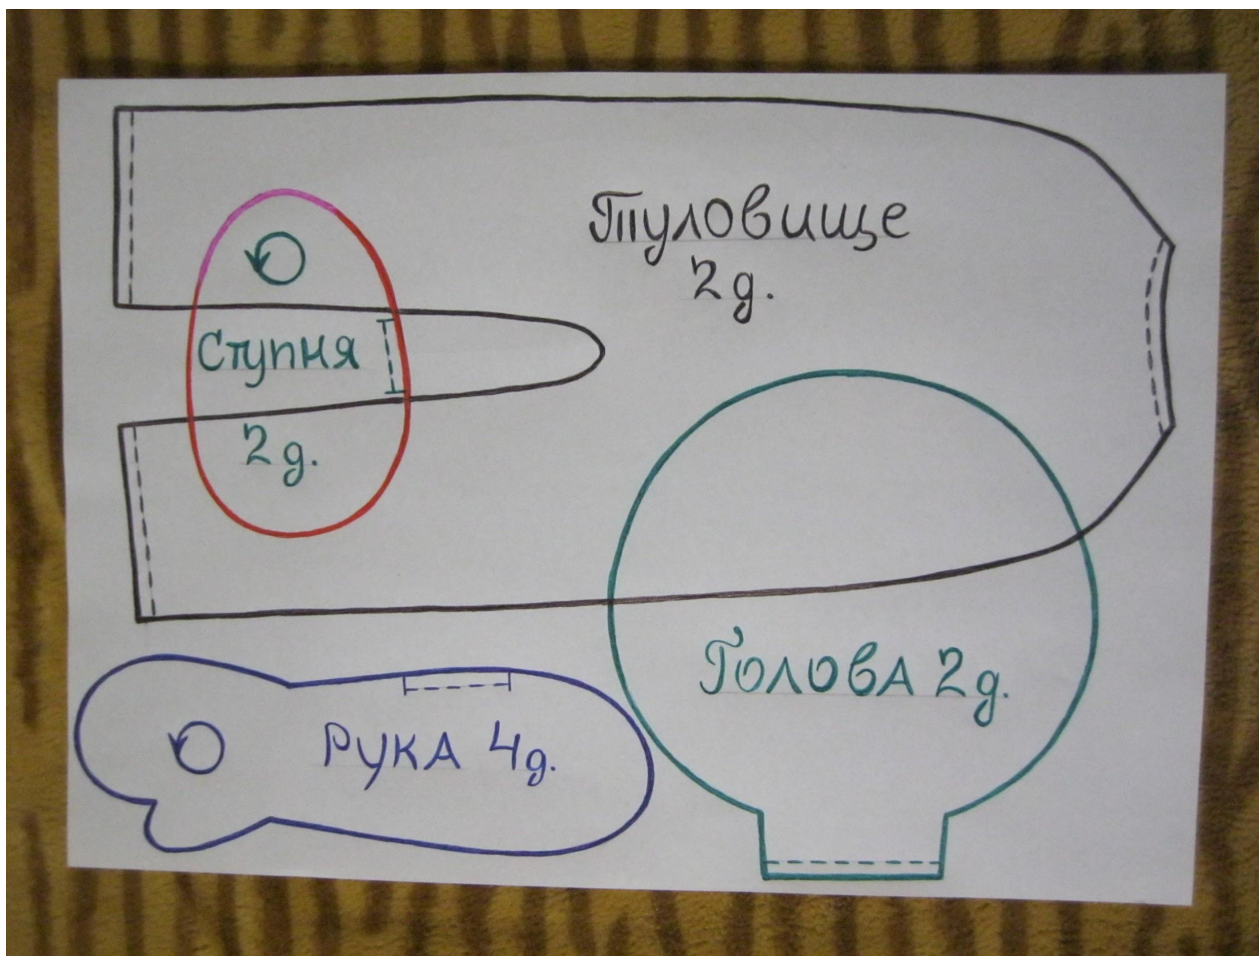 Туловище
2д.
Ступня
2д.
Голова 2д.
Рука 4д.